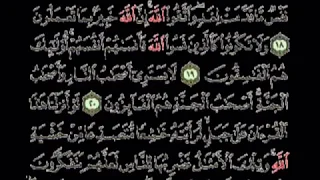 نَفْسٌ مَّا قَدَّمَتْ لِغَدٍ وَاتَّقُوا اللَّهَ إِنَّ اللَّهَ خَبِيرٌ بِمَا تَعْمَلُونَ
١٨ وَلَا تَكُونُوا كَالَّذِينَ نَسُوا اللَّهَ فَأَنسَاهُمْ أَنفُسَهُمْ أُولَٰئِكَ
هُمُ الْفَاسِقُونَ ١٩ لَا يَسْتَوِي أَصْحَابُ النَّارِ وَأَصْحَابُ
الْجَنَّةِ أَصْحَابُ الْجَنَّةِ هُمُ الْفَائِزُونَ ٢٠ لَوْ أَنزَلْنَا هَٰذَا
الْقُرْآنَ عَلَىٰ جَبَلٍ لَّرَأَيْتَهُ خَاشِعًا مُّتَصَدِّعًا مِّنْ خَشْيَةِ
اللَّهِ وَتِلْكَ الْأَمْثَالُ نَضْرِبُهَا لِلنَّاسِ لَعَلَّهُمْ يَتَفَكَّرُونَ